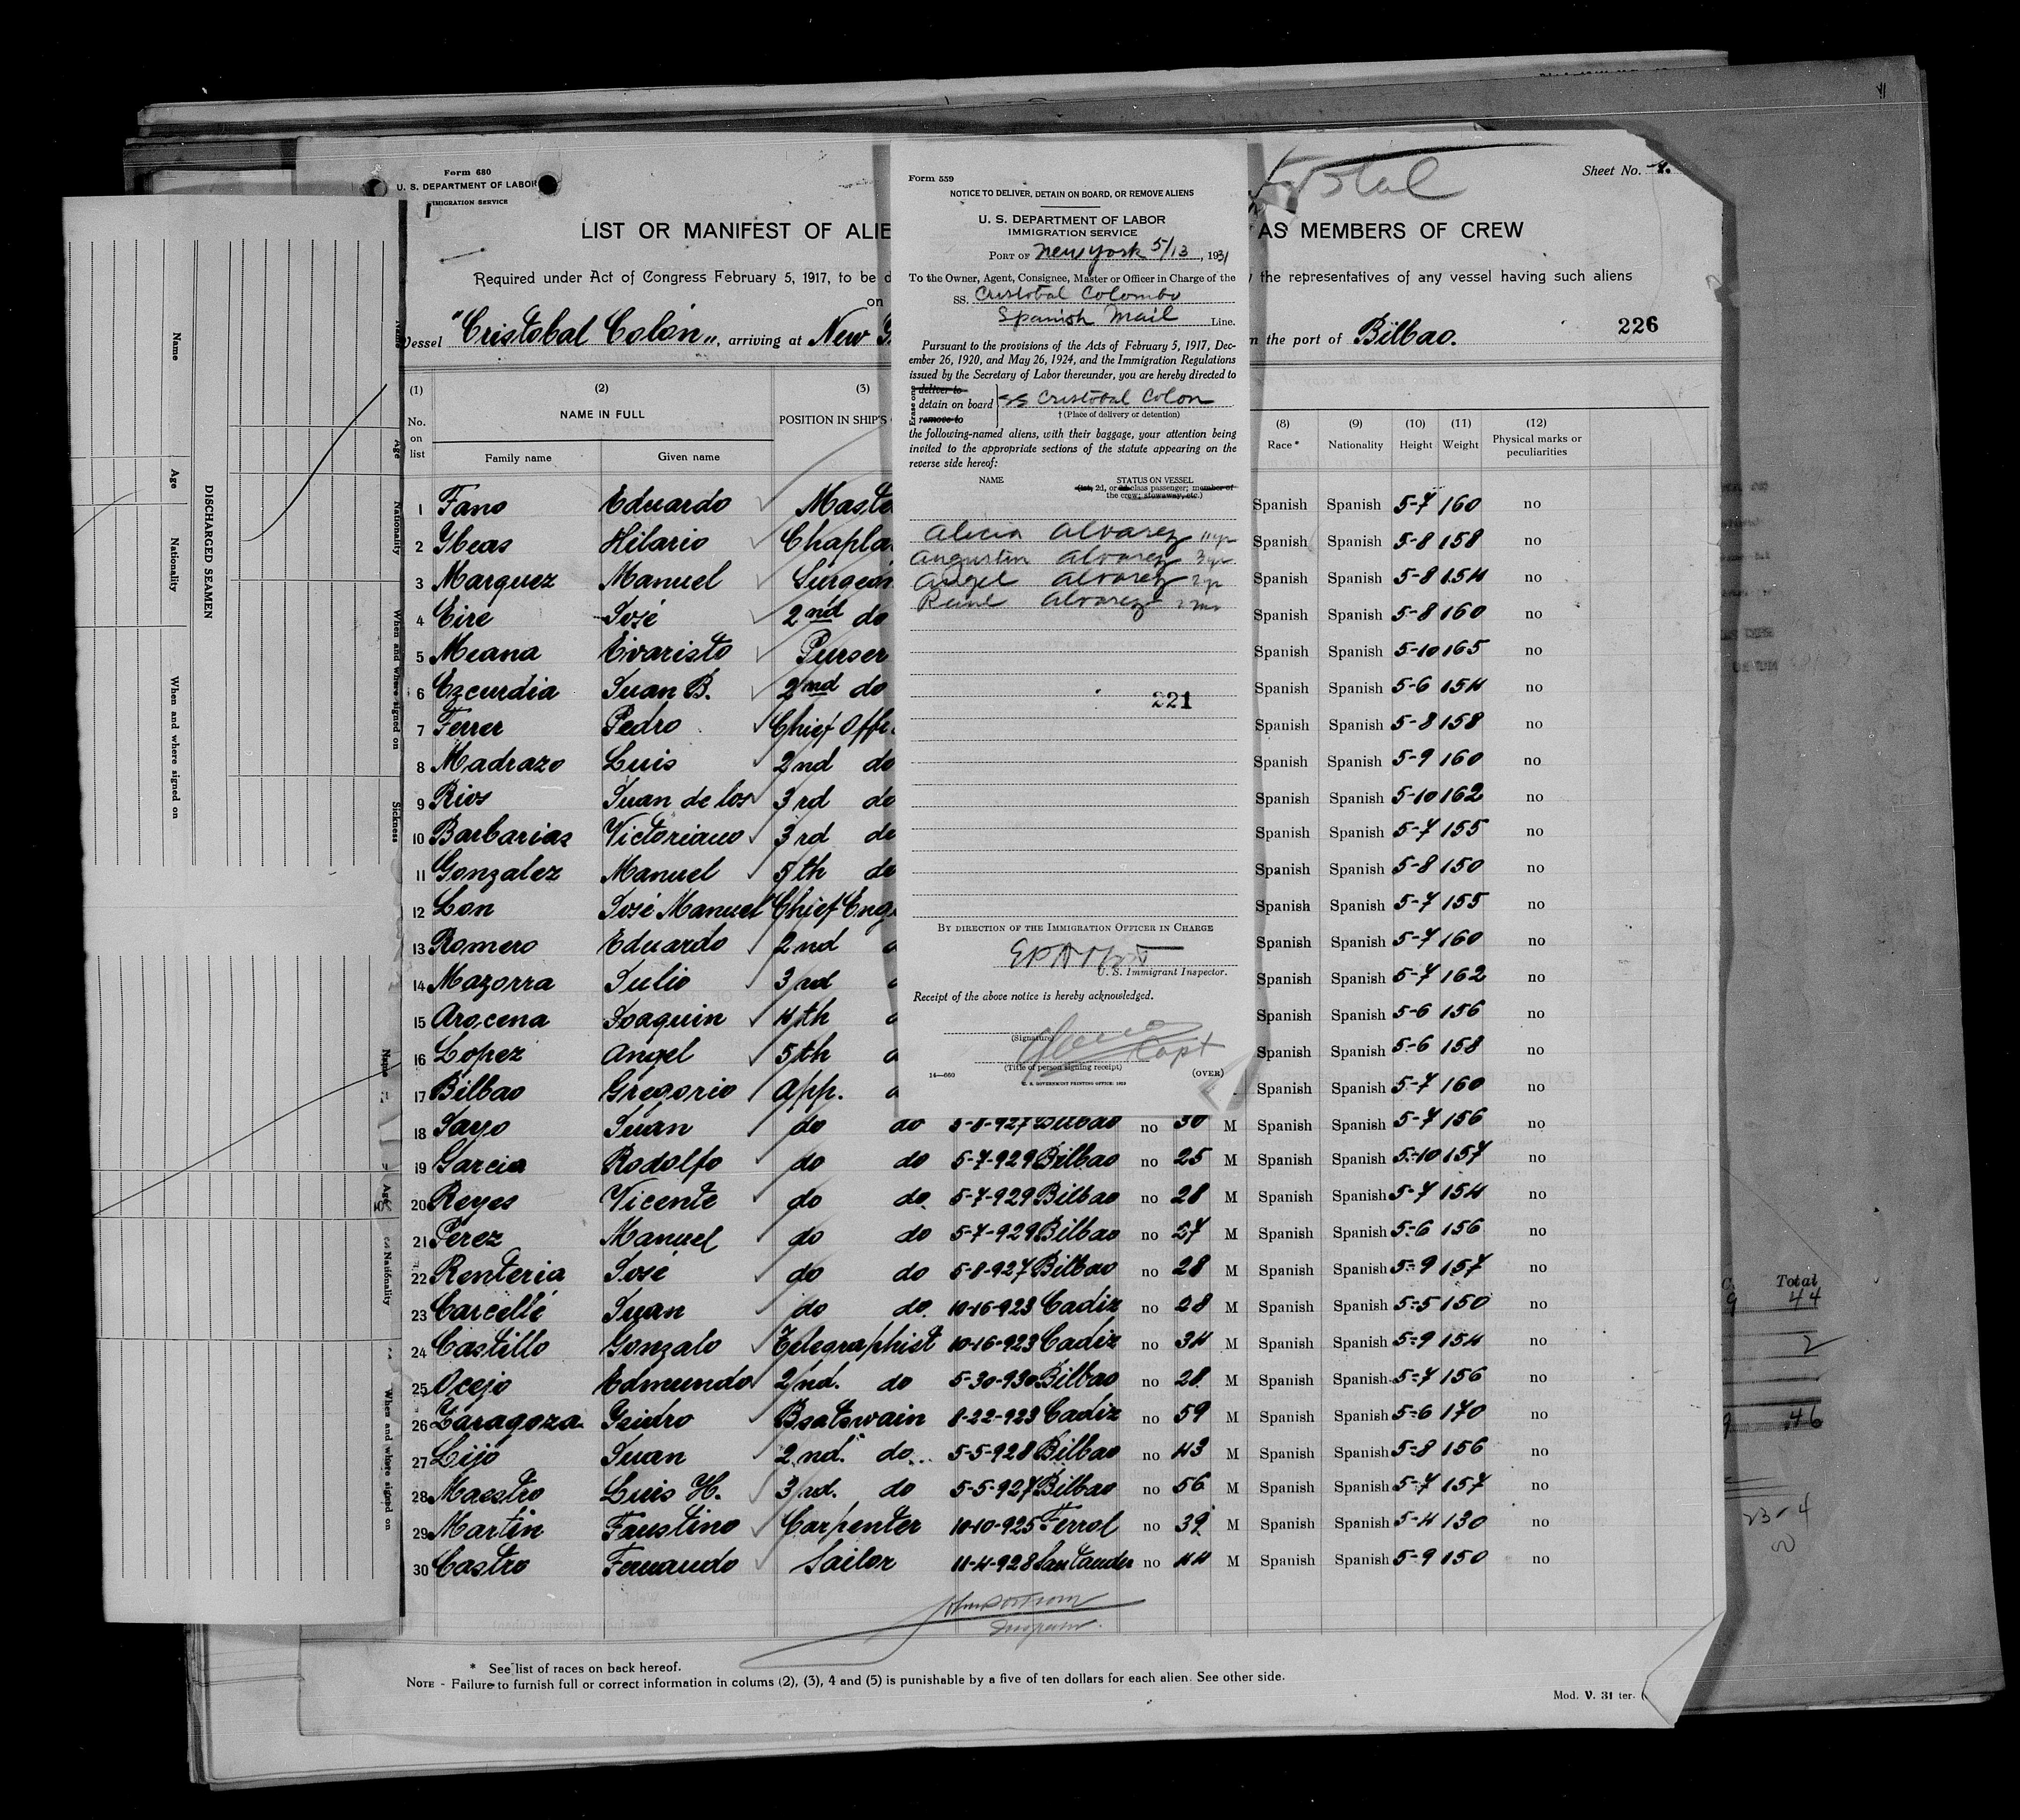 Form 680
U. S. DEPARTMENT OF LABOR
IMIGRATION SERVICE
Sheet No. 1.
LIST OR MANIFEST OF ALIE
AS MEMBERS OF CREW
Required under Act of Congress February 5, 1917, to be d
y the representatives of any vessel having such aliens
on
Vessel "Cristobal Colón", arriving at New
the port of Bilbao.
226
(1) (2) (3) (8) (9) (10) (11) (12)
No. on list NAME IN FULL POSITION IN SHIP'S Race* Nationality Height Weight Physical marks or peculiarities
Family name Given name
1 Fano Eduardo Maste Spanish Spanish 5-7 160 no
2 Ybeas Hilario Chapla Spanish Spanish 5-8 158 no
3 Marquez Manuel Surgeon Spanish Spanish 5-8 154 no
4 Eire José 2nd do Spanish Spanish 5-8 160 no
5 Meana Evaristo Purser Spanish Spanish 5-10 165 no
6 Ezcurdia Juan B. 2nd do Spanish Spanish 5-6 154 no
7 Ferrer Pedro Chief Offi Spanish Spanish 5-8 158 no
8 Madrazo Luis 2nd do Spanish Spanish 5-9 160 no
9 Rios Juan de los 3rd do Spanish Spanish 5-10 162 no
10 Barbarias Victoriano 3rd do Spanish Spanish 5-7 155 no
11 Gonzalez Manuel 5th do Spanish Spanish 5-8 150 no
12 Lon José Manuel Chief Eng Spanish Spanish 5-7 155 no
13 Romero Eduardo 2nd Spanish Spanish 5-7 160 no
14 Mazorra Julio 3rd Spanish Spanish 5-7 162 no
15 Arocena Joaquin 4th Spanish Spanish 5-6 156 no
16 Lopez Angel 5th Spanish Spanish 5-6 158 no
17 Bilbao Gregorio App. Spanish Spanish 5-7 160 no
18 Sayo Juan do do 5-8-927 Bilbao no 30 M Spanish Spanish 5-7 156 no
19 Garcia Rodolfo do do 5-7-929 Bilbao no 25 M Spanish Spanish 5-10 157 no
20 Reyes Vicente do do 5-7-929 Bilbao no 28 M Spanish Spanish 5-7 154 no
21 Perez Manuel do do 5-7-929 Bilbao no 27 M Spanish Spanish 5-6 156 no
22 Renteria José do do 5-8-927 Bilbao no 28 M Spanish Spanish 5-9 157 no
23 Carcellé Juan do do 10-16-923 Cadiz no 28 M Spanish Spanish 5-5 150 no
24 Castillo Gonzalo Telegraphist 10-16-923 Cadiz no 34 M Spanish Spanish 5-9 154 no
25 Ocejo Edmundo 2nd. do 5-30-930 Bilbao no 28 M Spanish Spanish 5-7 156 no
26 Zaragoza Isidro Boatswain 8-22-923 Cadiz no 59 M Spanish Spanish 5-6 170 no
27 Lijo Juan 2nd. do 5-5-928 Bilbao no 43 M Spanish Spanish 5-8 156 no
28 Maestro Luis H. 3rd. do 5-5-927 Bilbao no 56 M Spanish Spanish 5-7 157 no
29 Martin Faustino Carpenter 10-10-925 Ferrol no 39 M Spanish Spanish 5-4 130 no
30 Castro Fernando Sailor 11-4-928 Santander no 44 M Spanish Spanish 5-9 150 no
* See list of races on back hereof.
NOTE - Failure to furnish full or correct information in colums (2), (3), 4 and (5) is punishable by a five of ten dollars for each alien. See other side.
Mod. V. 31 ter.
Form 559
NOTICE TO DELIVER, DETAIN ON BOARD, OR REMOVE ALIENS
U. S. DEPARTMENT OF LABOR
IMMIGRATION SERVICE
PORT OF New York 5/13, 1931
To the Owner, Agent, Consignee, Master or Officer in Charge of the
SS. Cristobal Colombo
Spanish Mail Line.
Pursuant to the provisions of the Acts of February 5, 1917, Dec-
ember 26, 1920, and May 26, 1924, and the Immigration Regulations
issued by the Secretary of Labor thereunder, you are hereby directed to
deliver to
detain on board SS Cristobal Colon
remove to
† (Place of delivery or detention)
the following-named aliens, with their baggage, your attention being
invited to the appropriate sections of the statute appearing on the
reverse side hereof:
NAME STATUS ON VESSEL
(1st, 2d, or 3d class passenger; member of
the crew; stowaway, etc.)
Alicia Alvarez 11 yr
Angustin Alvarez 3 yr
Angel Alvarez 2 yr
Alvarez
221
BY DIRECTION OF THE IMMIGRATION OFFICER IN CHARGE
U. S. Immigrant Inspector.
Receipt of the above notice is hereby acknowledged.
(Signature)
Capt
(Title of person signing receipt)
14—660
(OVER)
U. S. GOVERNMENT PRINTING OFFICE: 1929
DISCHARGED SEAMEN
Name Age Nationality When and where signed on
Name Age Nationality When and where signed on Sickness
Name Age Nationality When and where signed on
Total
44
2
46
23-4